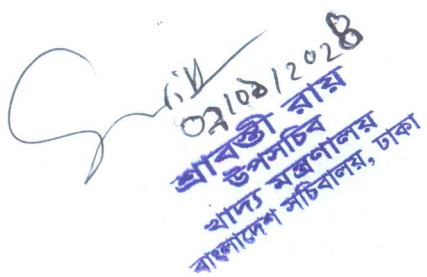 শ্রাবস্তী রায়
উপসচিব
খাদ্য মন্ত্রণালয়
বাংলাদেশ সচিবালয়, ঢাকা